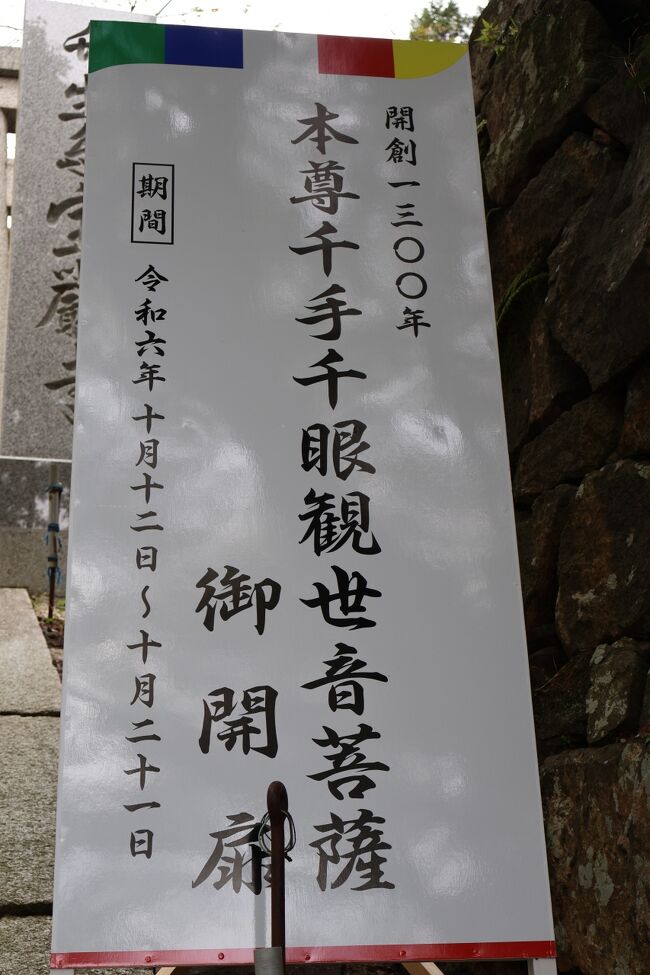 開創一三〇〇年
本尊千手千眼観世音菩薩
御開扉
期間
令和六年十月十二日～十月二十一日